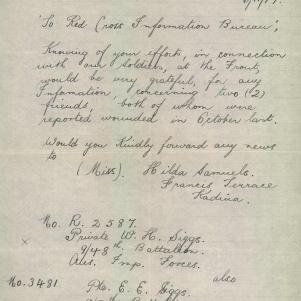 To Red Cross Information Bureau,
Knowing of your efforts, in connection
with our soldiers, at the Front,
would be very grateful, for any
Information, concerning two (2)
friends, both of whom were
reported wounded in October last.
Would you Kindly forward any news
to
(Miss). Hilda Samuels.
Francis Terrace
Kadina.
No. R. 2587.
Private W. H. Siggs.
9/48th Battalion
Aus. Imp. Forces.
also
No. 3481 Pte. E. E. Siggs.